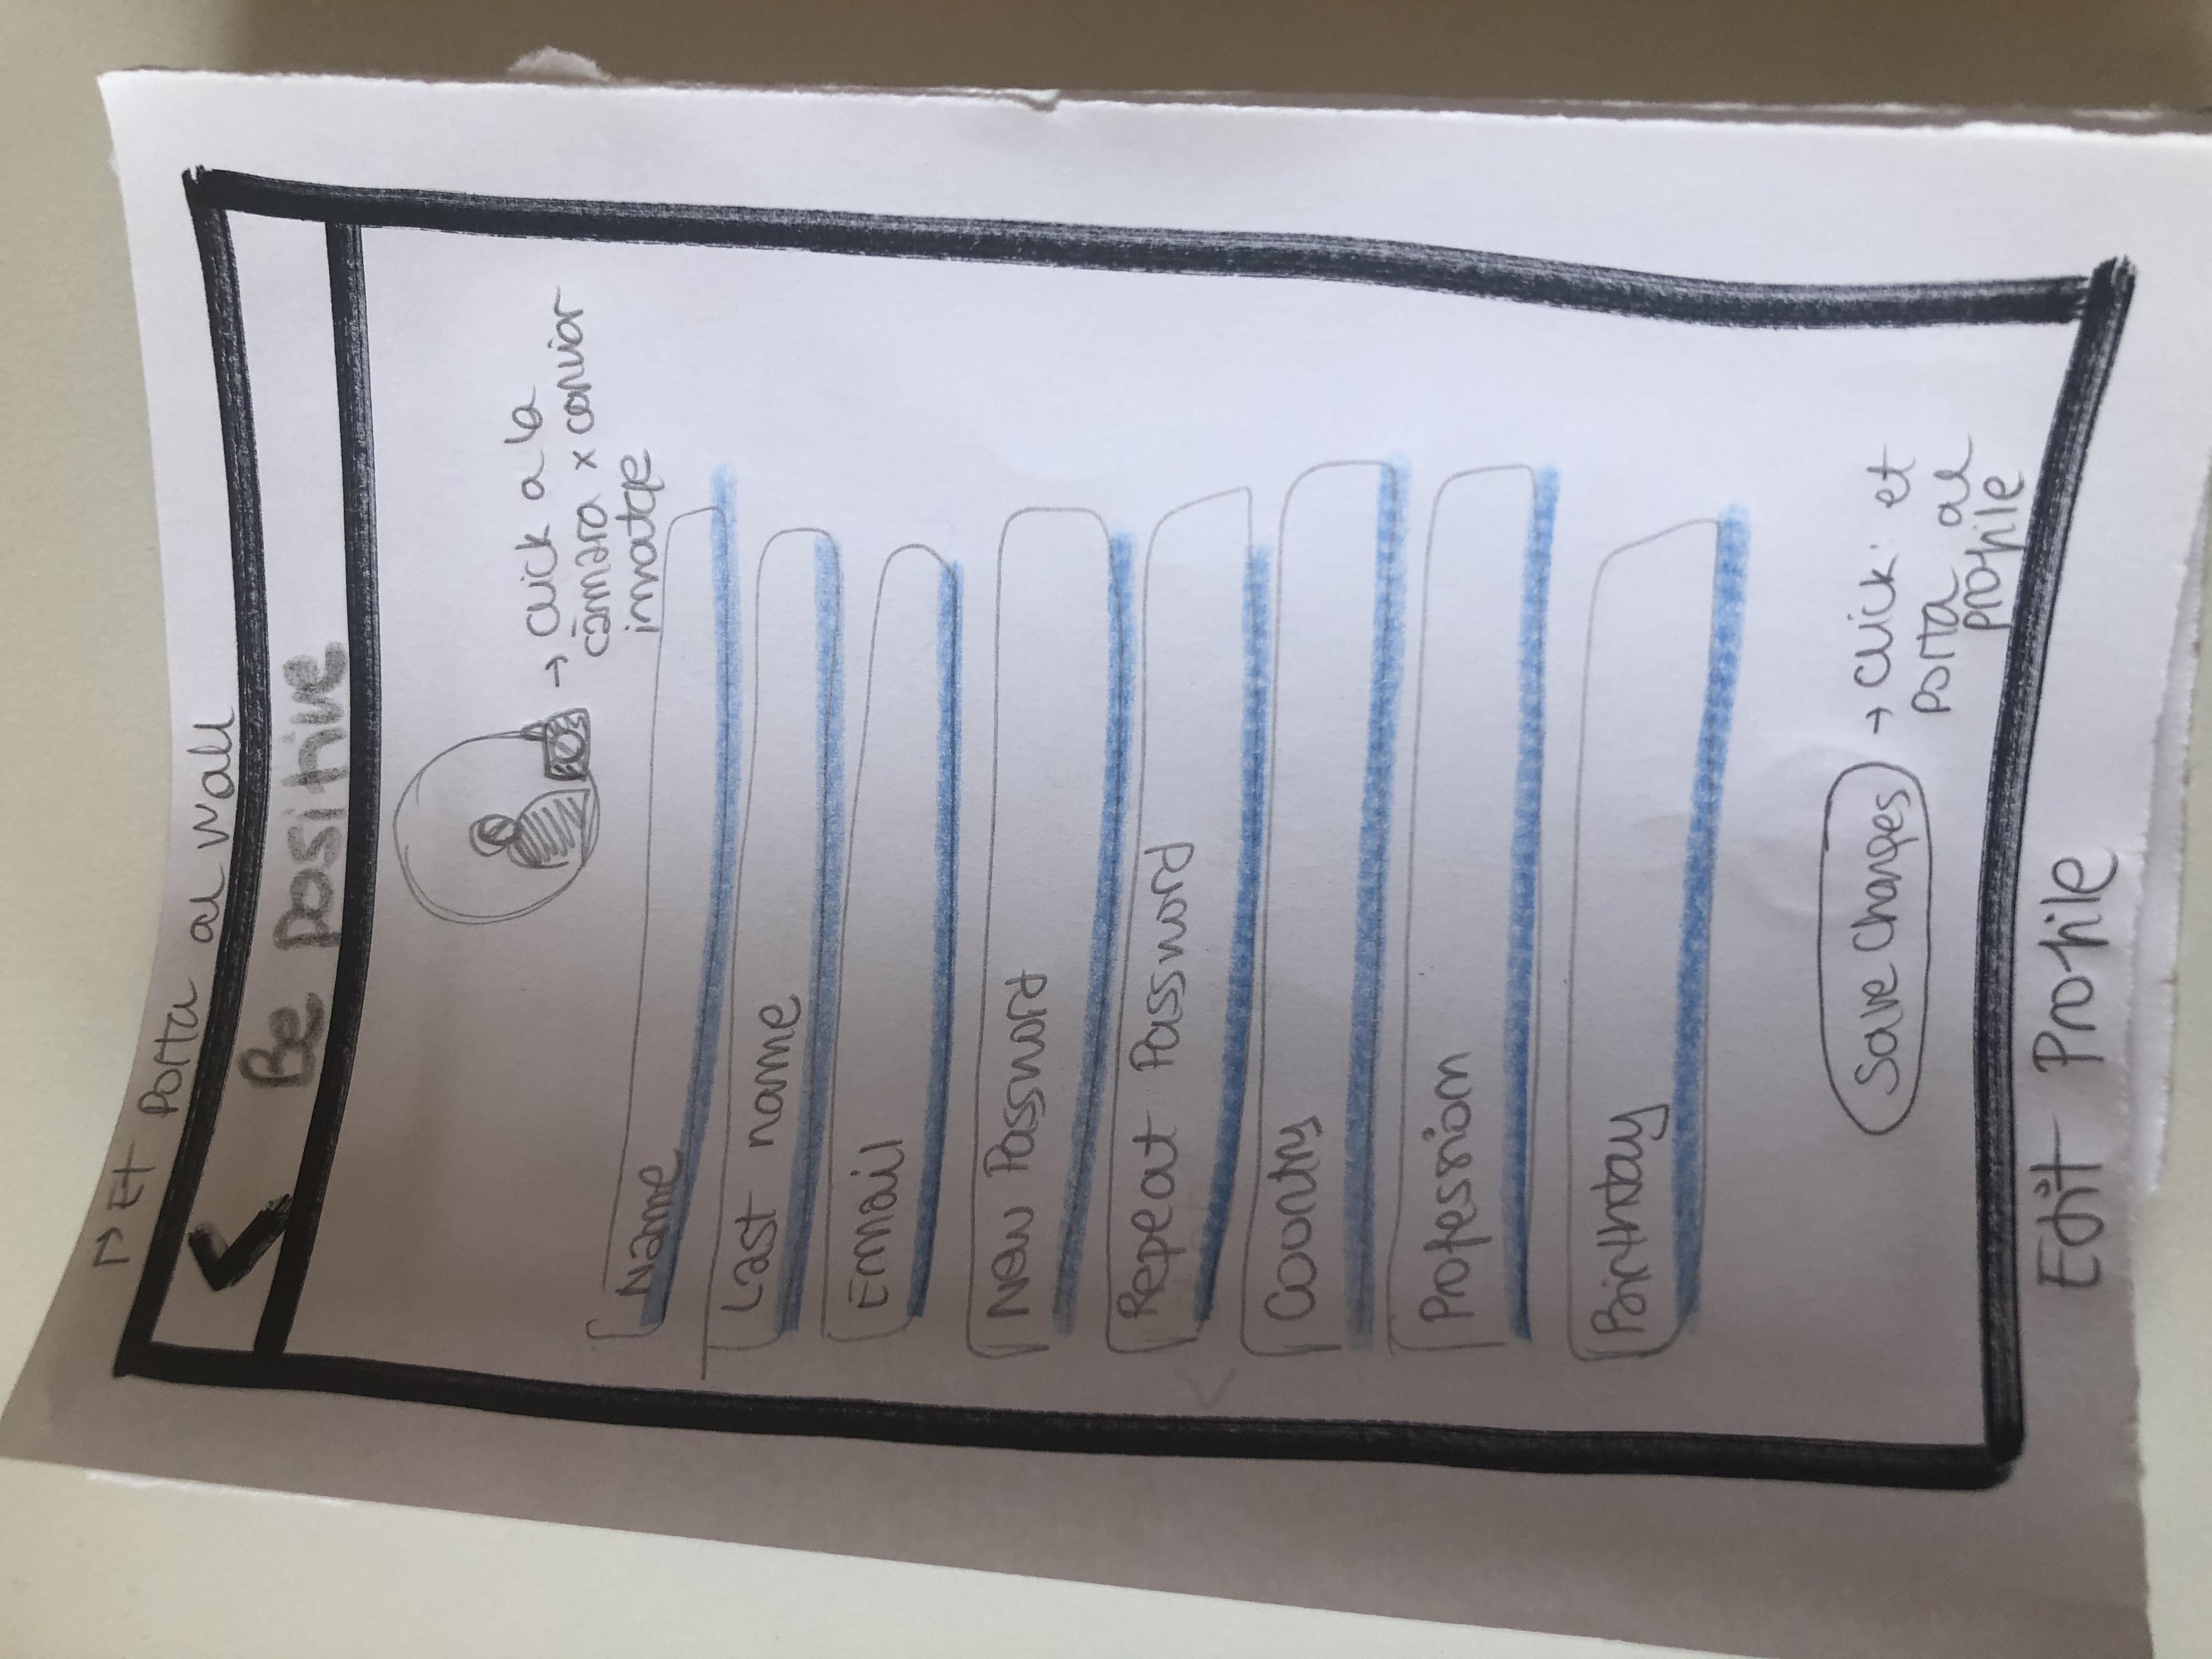 Et porta al wall
Be positive
click a la
càmara x canviar
imatge
Name
Last name
Email
New Password
Repeat Password
Country
Profession
Birthday
Save Changes
click: et
porta al
profile
Edit Profile